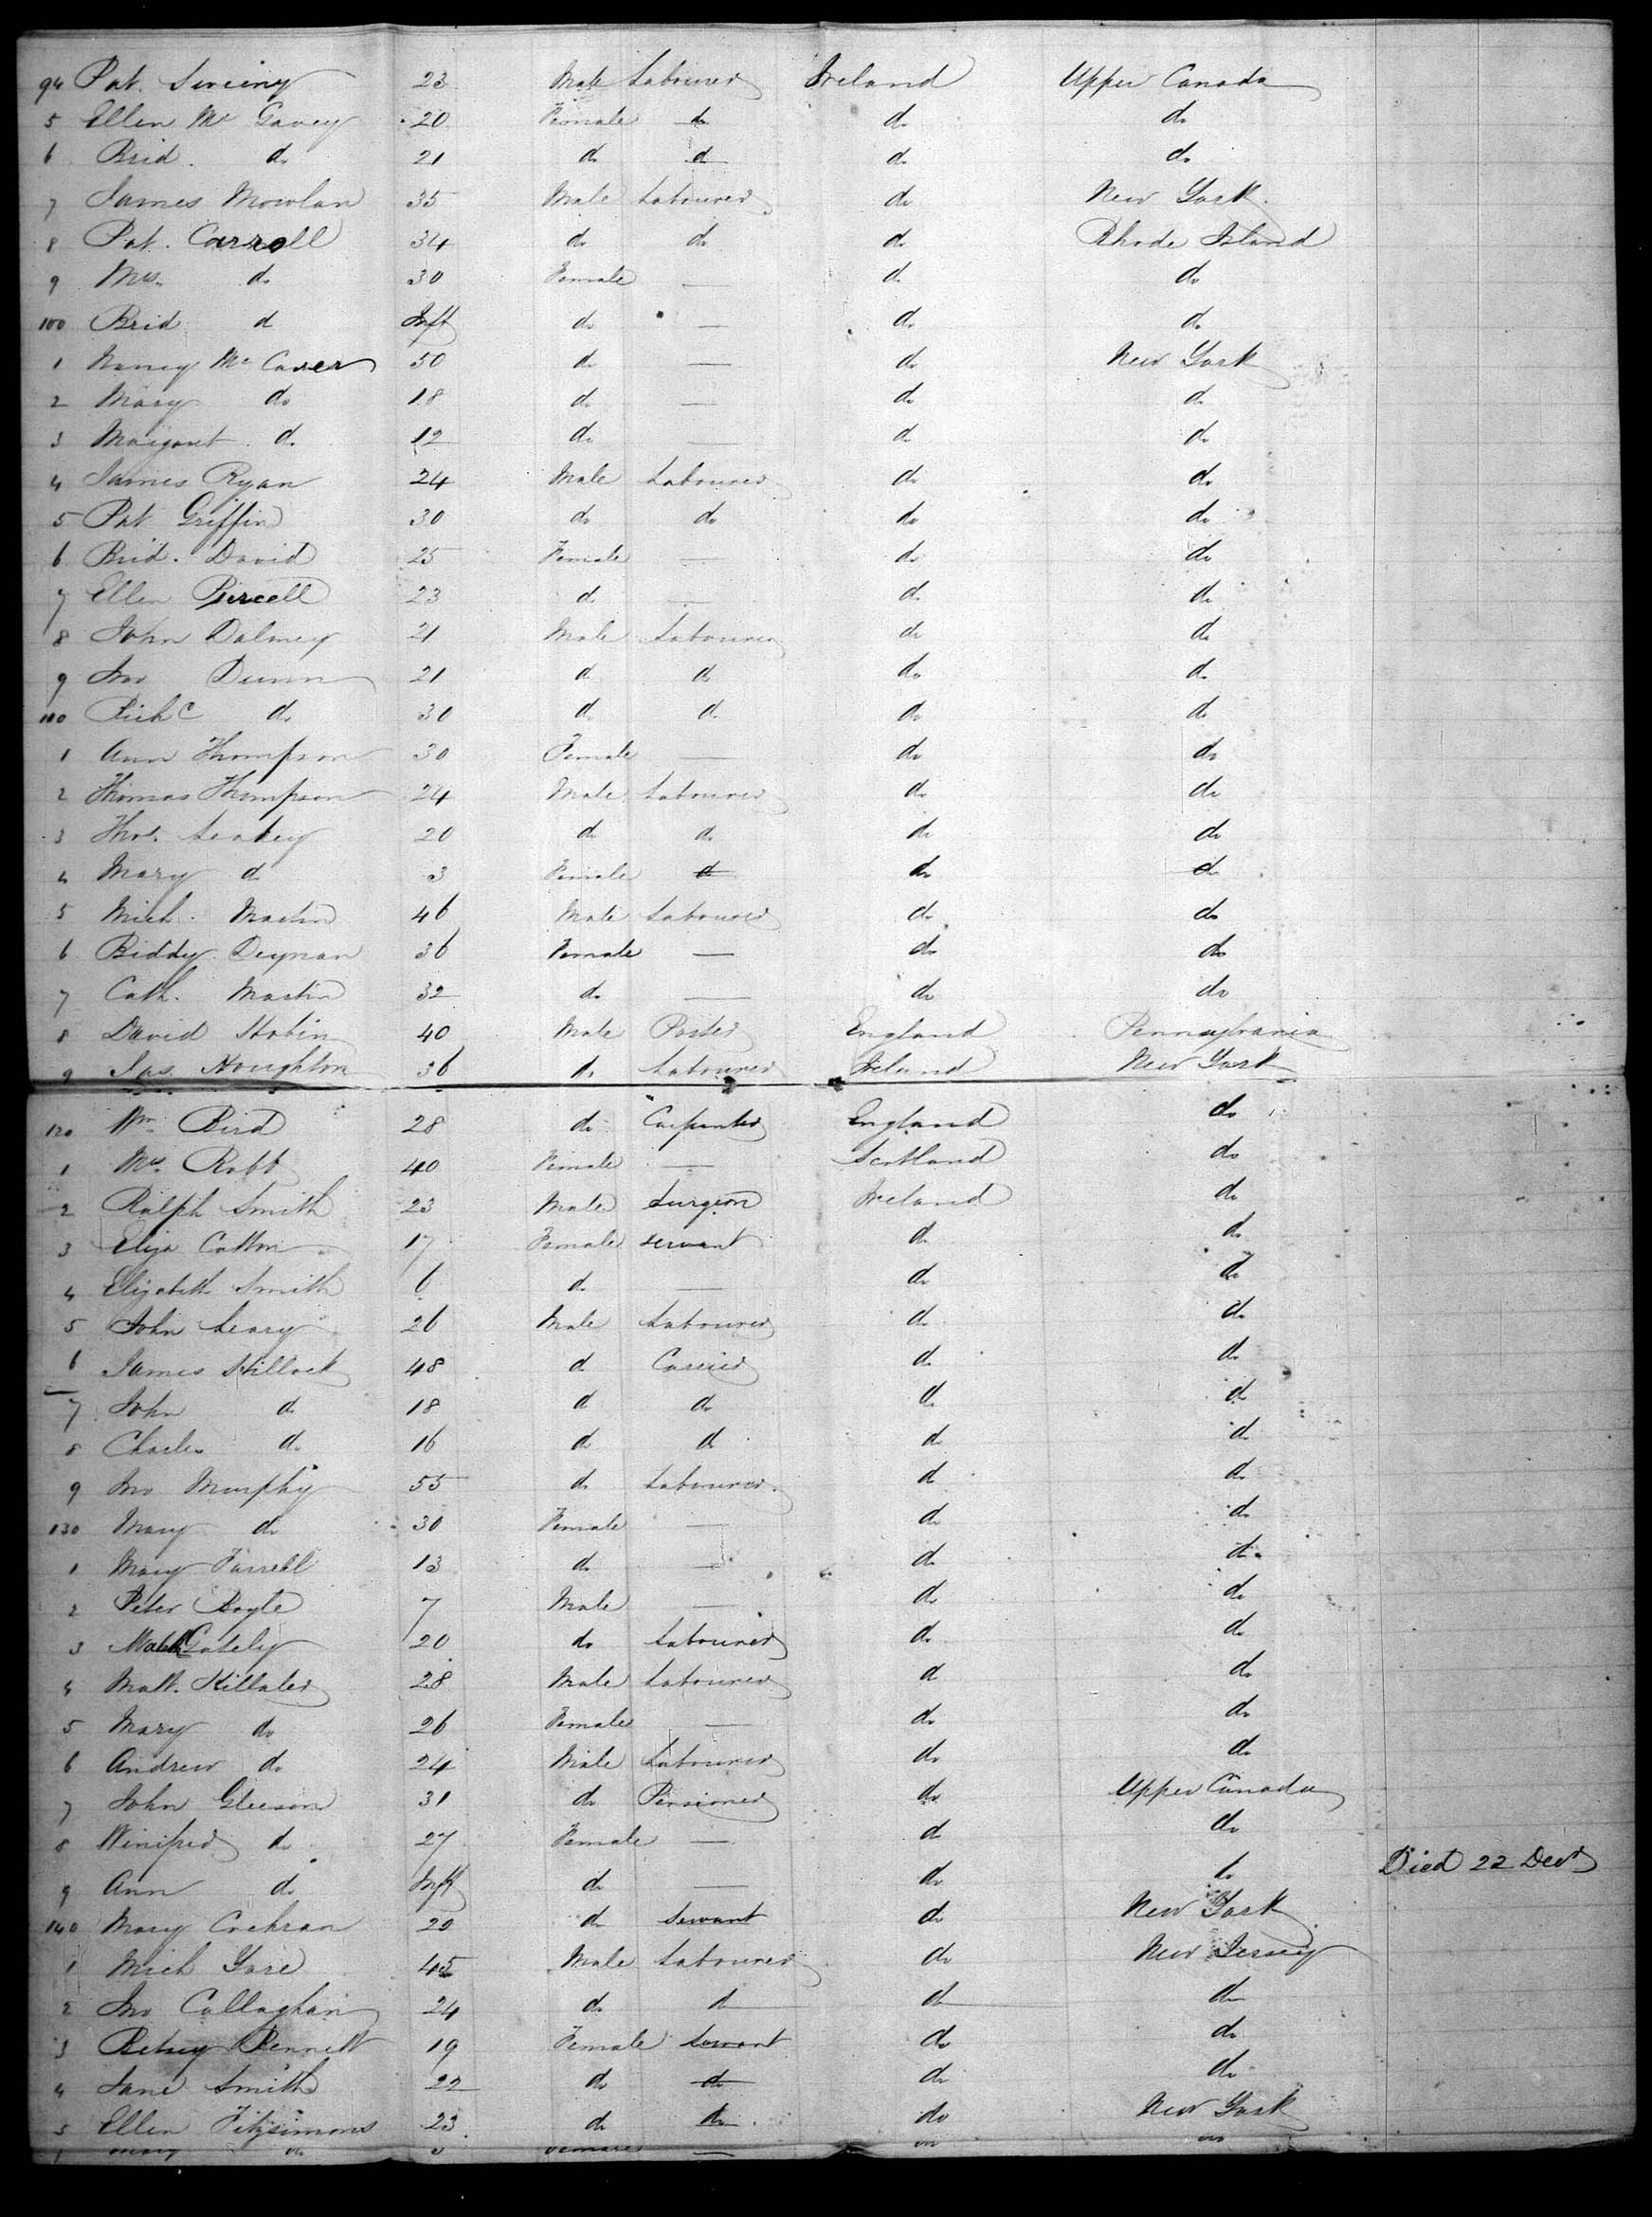 94 Pat. Sweeny 23 Male Labourer Ireland Upper Canada
5 Ellen Mc Gavey 20 Female do do do
6 Brid. do 21 do do do do
7 James Mowlan 35 Male Labourer do New York
8 Pat. Carroll 34 do do do Rhode Island
9 Mrs. do 30 Female — do do
100 Brid do Inft do — do do
1 Nancy Mc Caver 50 do — do New York
2 Mary do 18 do — do do
3 Margaret do 12 do — do do
4 James Ryan 24 Male Labourer do do
5 Pat Griffin 30 do do do do
6 Brid. David 25 Female — do do
7 Ellen Purcell 23 do — do do
8 John Dalmey 21 Male Labourer do do
9 Jno Dunn 21 do do do do
110 Rich do 30 do do do do
1 Ann Thompson 30 Female — do do
2 Thomas Thompson 24 Male Labourer do do
3 Thos. Leakey 20 do do do do
4 Mary do 3 Female do do do
5 Mich. Martin 46 Male Labourer do do
6 Biddy Deynan 36 Female — do do
7 Cath. Martin 32 do — do do
8 David Hobin 40 Male Porter England Pennsylvania
9 Jas. Houghton 36 do Labourer Ireland New York
120 Wm Bird 28 do Carpenter England do
1 Mrs. Robb 40 Female — Scotland do
2 Ralph Smith 23 Male Surgeon Ireland do
3 Eliza Cotton 17 Female servant do do
4 Elizabeth Smith 6 do — do do
5 John Leary 26 Male Labourer do do
6 James Killock 48 do Carrier do do
7 John do 18 do do do do
8 Charles do 16 do do do do
9 Jno Murphy 55 do Labourer do do
130 Mary do 30 Female — do do
1 Mary Farrell 13 do — do do
2 Peter Boyle 7 Male — do do
3 Gately 20 do Labourer do do
4 Matt. Killaler 28 Male Labourer do do
5 Mary do 26 Female — do do
6 Andrew do 24 Male Labourer do do
7 John Gleeson 31 do Pensioner do Upper Canada
8 Winifred do 27 Female — do do
9 Ann do Inft do — do do Died 22 Decr
140 Mary Cochran 20 do Servant do New York
1 Mich Gore 45 Male Labourer do New Jersey
2 Jno Callaghan 24 do do do do
3 Betsey Bennett 19 Female Servant do do
4 Jane Smith 22 do do do do
5 Ellen Fitzsimons 23 do do do New York
Mary do Female — do do